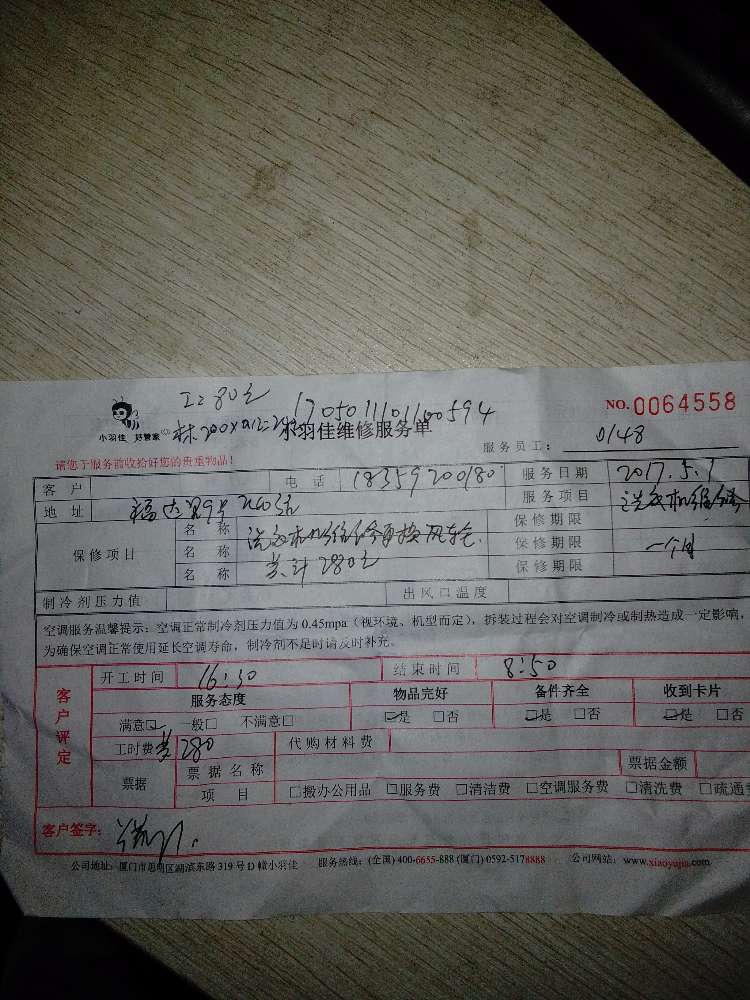 工: 80元
17050111011600594
NO. 0064558
小羽佳 好管家
小羽佳维修服务单
服务员工: 0148
请您于服务前收拾好您的贵重物品!
客户 电话 18359200180 服务日期 2017.5.1
地址 服务项目 洗衣机维修
保修项目 名称 洗衣机维修更换 保修期限
名称 共计280元 保修期限 一个月
名称 保修期限
制冷剂压力值 出风口温度
空调服务温馨提示:空调正常制冷剂压力值为 0.45mpa(视环境、机型而定),拆装过程会对空调制冷或制热造成一定影响,
为确保空调正常使用延长空调寿命,制冷剂不足时请及时补充。
客户评定
开工时间 16:30 结束时间 8:50
服务态度 物品完好 备件齐全 收到卡片
满意☑ 一般□ 不满意□ ☑是 □否 ☑是 □否 ☑是 □否
工时费 共280 代购材料费
票据 票据名称 票据金额
项目 □搬办公用品 □服务费 □清洁费 □空调服务费 □清洗费 □疏通
客户签字:
公司地址:厦门市思明区湖滨东路 319 号 D 幢小羽佳 服务热线:(全国) 400-6655-888 (厦门) 0592-5178888 公司网站:www.xiaoyujia.com